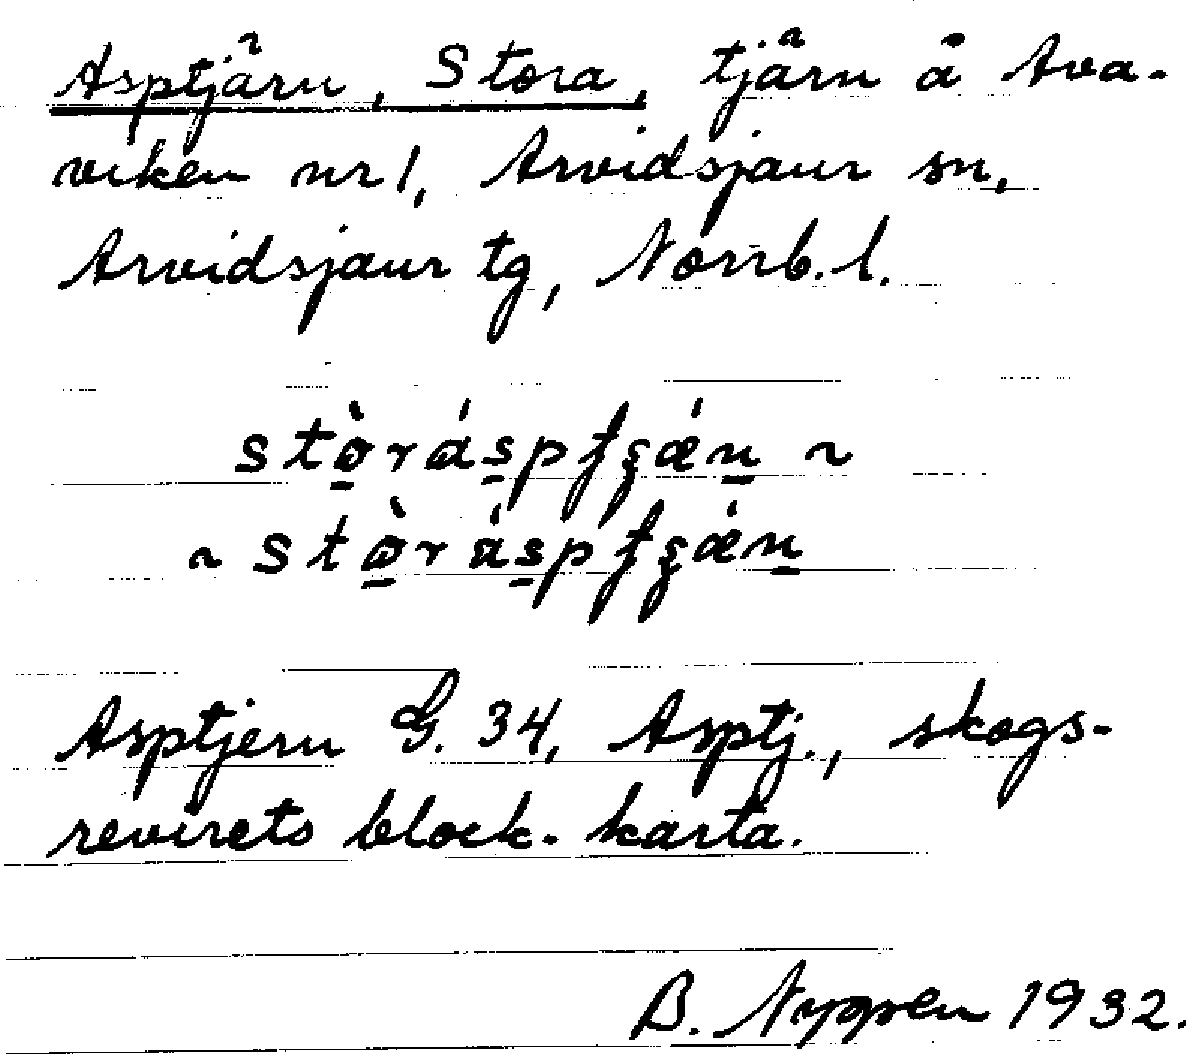 Asptjärn, Stora, tjärn å Ava-
viken nr 1, Arvidsjaur sn,
Arvidsjaur tg, Norrb. l.
Asptjern G. 34, Asptj., skogs-
revirets block-karta.
B. Nygren 1932.